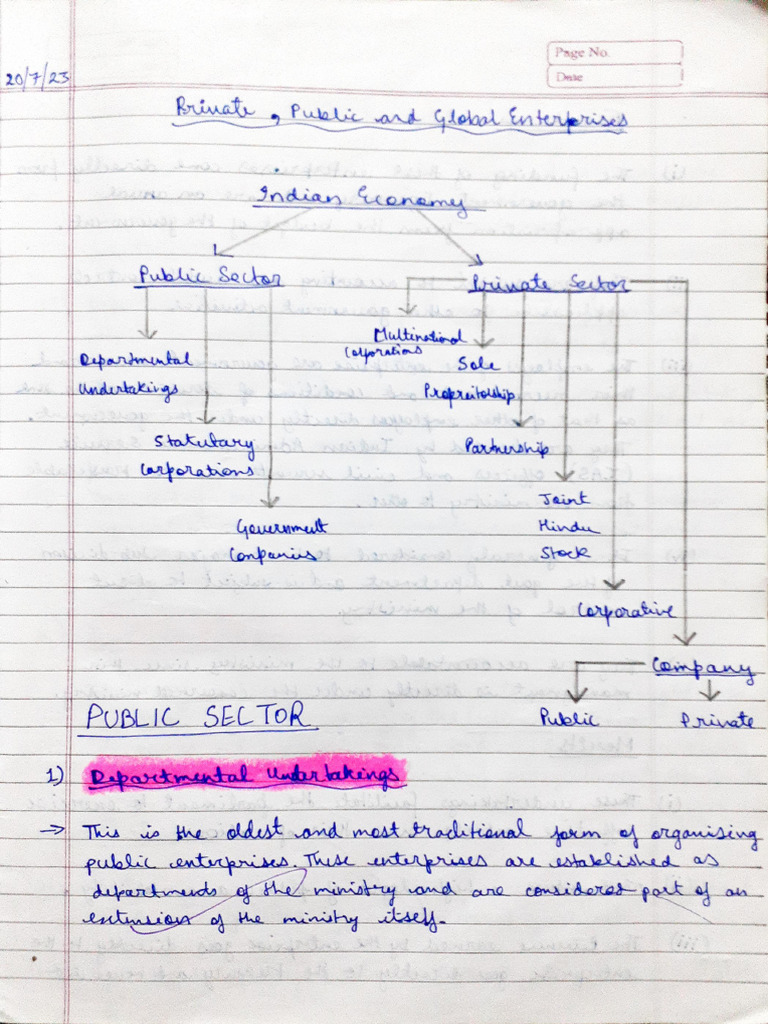 Page No.
Date
20/7/23
Private, Public and Global Enterprises
Indian Economy
Public Sector
Private Sector
Multinational
Corporations
Departmental
Undertakings
Sole
Propreitorship
Statutary
Corporations
Partnership
Joint
Hindu
Stock
Government
Companies
Corporative
Company
Public
Private
PUBLIC SECTOR
1) Departmental Undertakings
→ This is the oldest and most traditional form of organising
public enterprises. These enterprises are established as
departments of the ministry and are considered part of an
extension of the ministry itself.